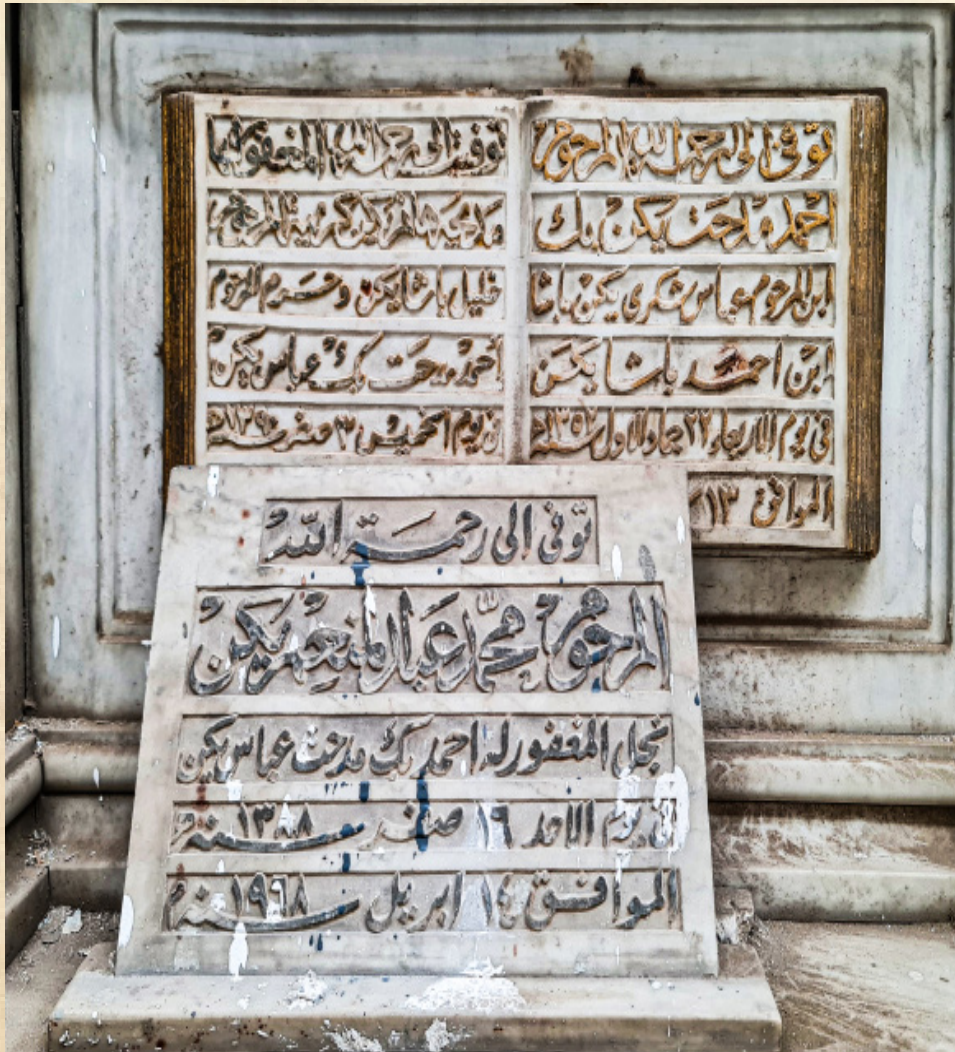 توفى الى رحمة الله المرحوم
احمد مدحت يكن بك
ابن المرحوم عباس شكرى يكن باشا
ابن احمد باشا يكن
فى يوم الاربعاء ٢٢ جماد الاول سنة ١٣٥٧
الموافق ١٣
توفيت الى رحمة الله المغفور لها
مديحة هانم يكن كريمة المرحوم
خليل باشا يكن وحرم المرحوم
احمد مدحت بك عباس يكن
فى يوم الخميس ٣ صفر سنة ١٣٩٠
توفى الى رحمة الله
المرحوم محمد عبد المنعم يكن
نجل المغفور له احمد بك مدحت عباس يكن
فى يوم الاحد ١٦ صفر سنة ١٣٨٨
الموافق ١٤ ابريل سنة ١٩٦٨